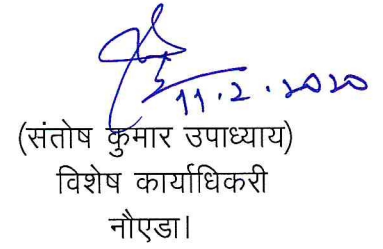 11.2.2020
(संतोष कुमार उपाध्याय)
विशेष कार्याधिकरी
नौएडा।